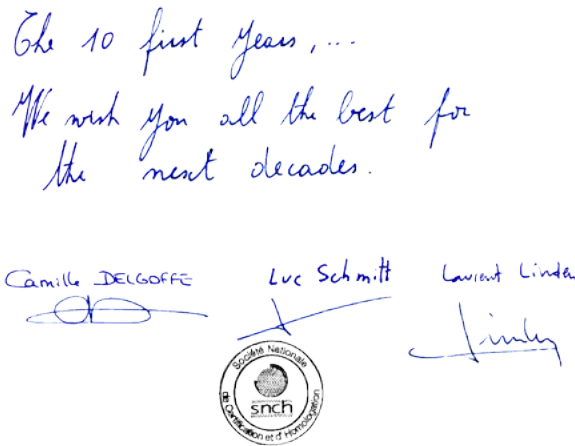 The 10 first years,...
We wish you all the best for
the next decades.
Camille DELGOFFE Luc Schmitt Laurent Linden
Linden
Société Nationale
snch
de Certification et d'Homologation